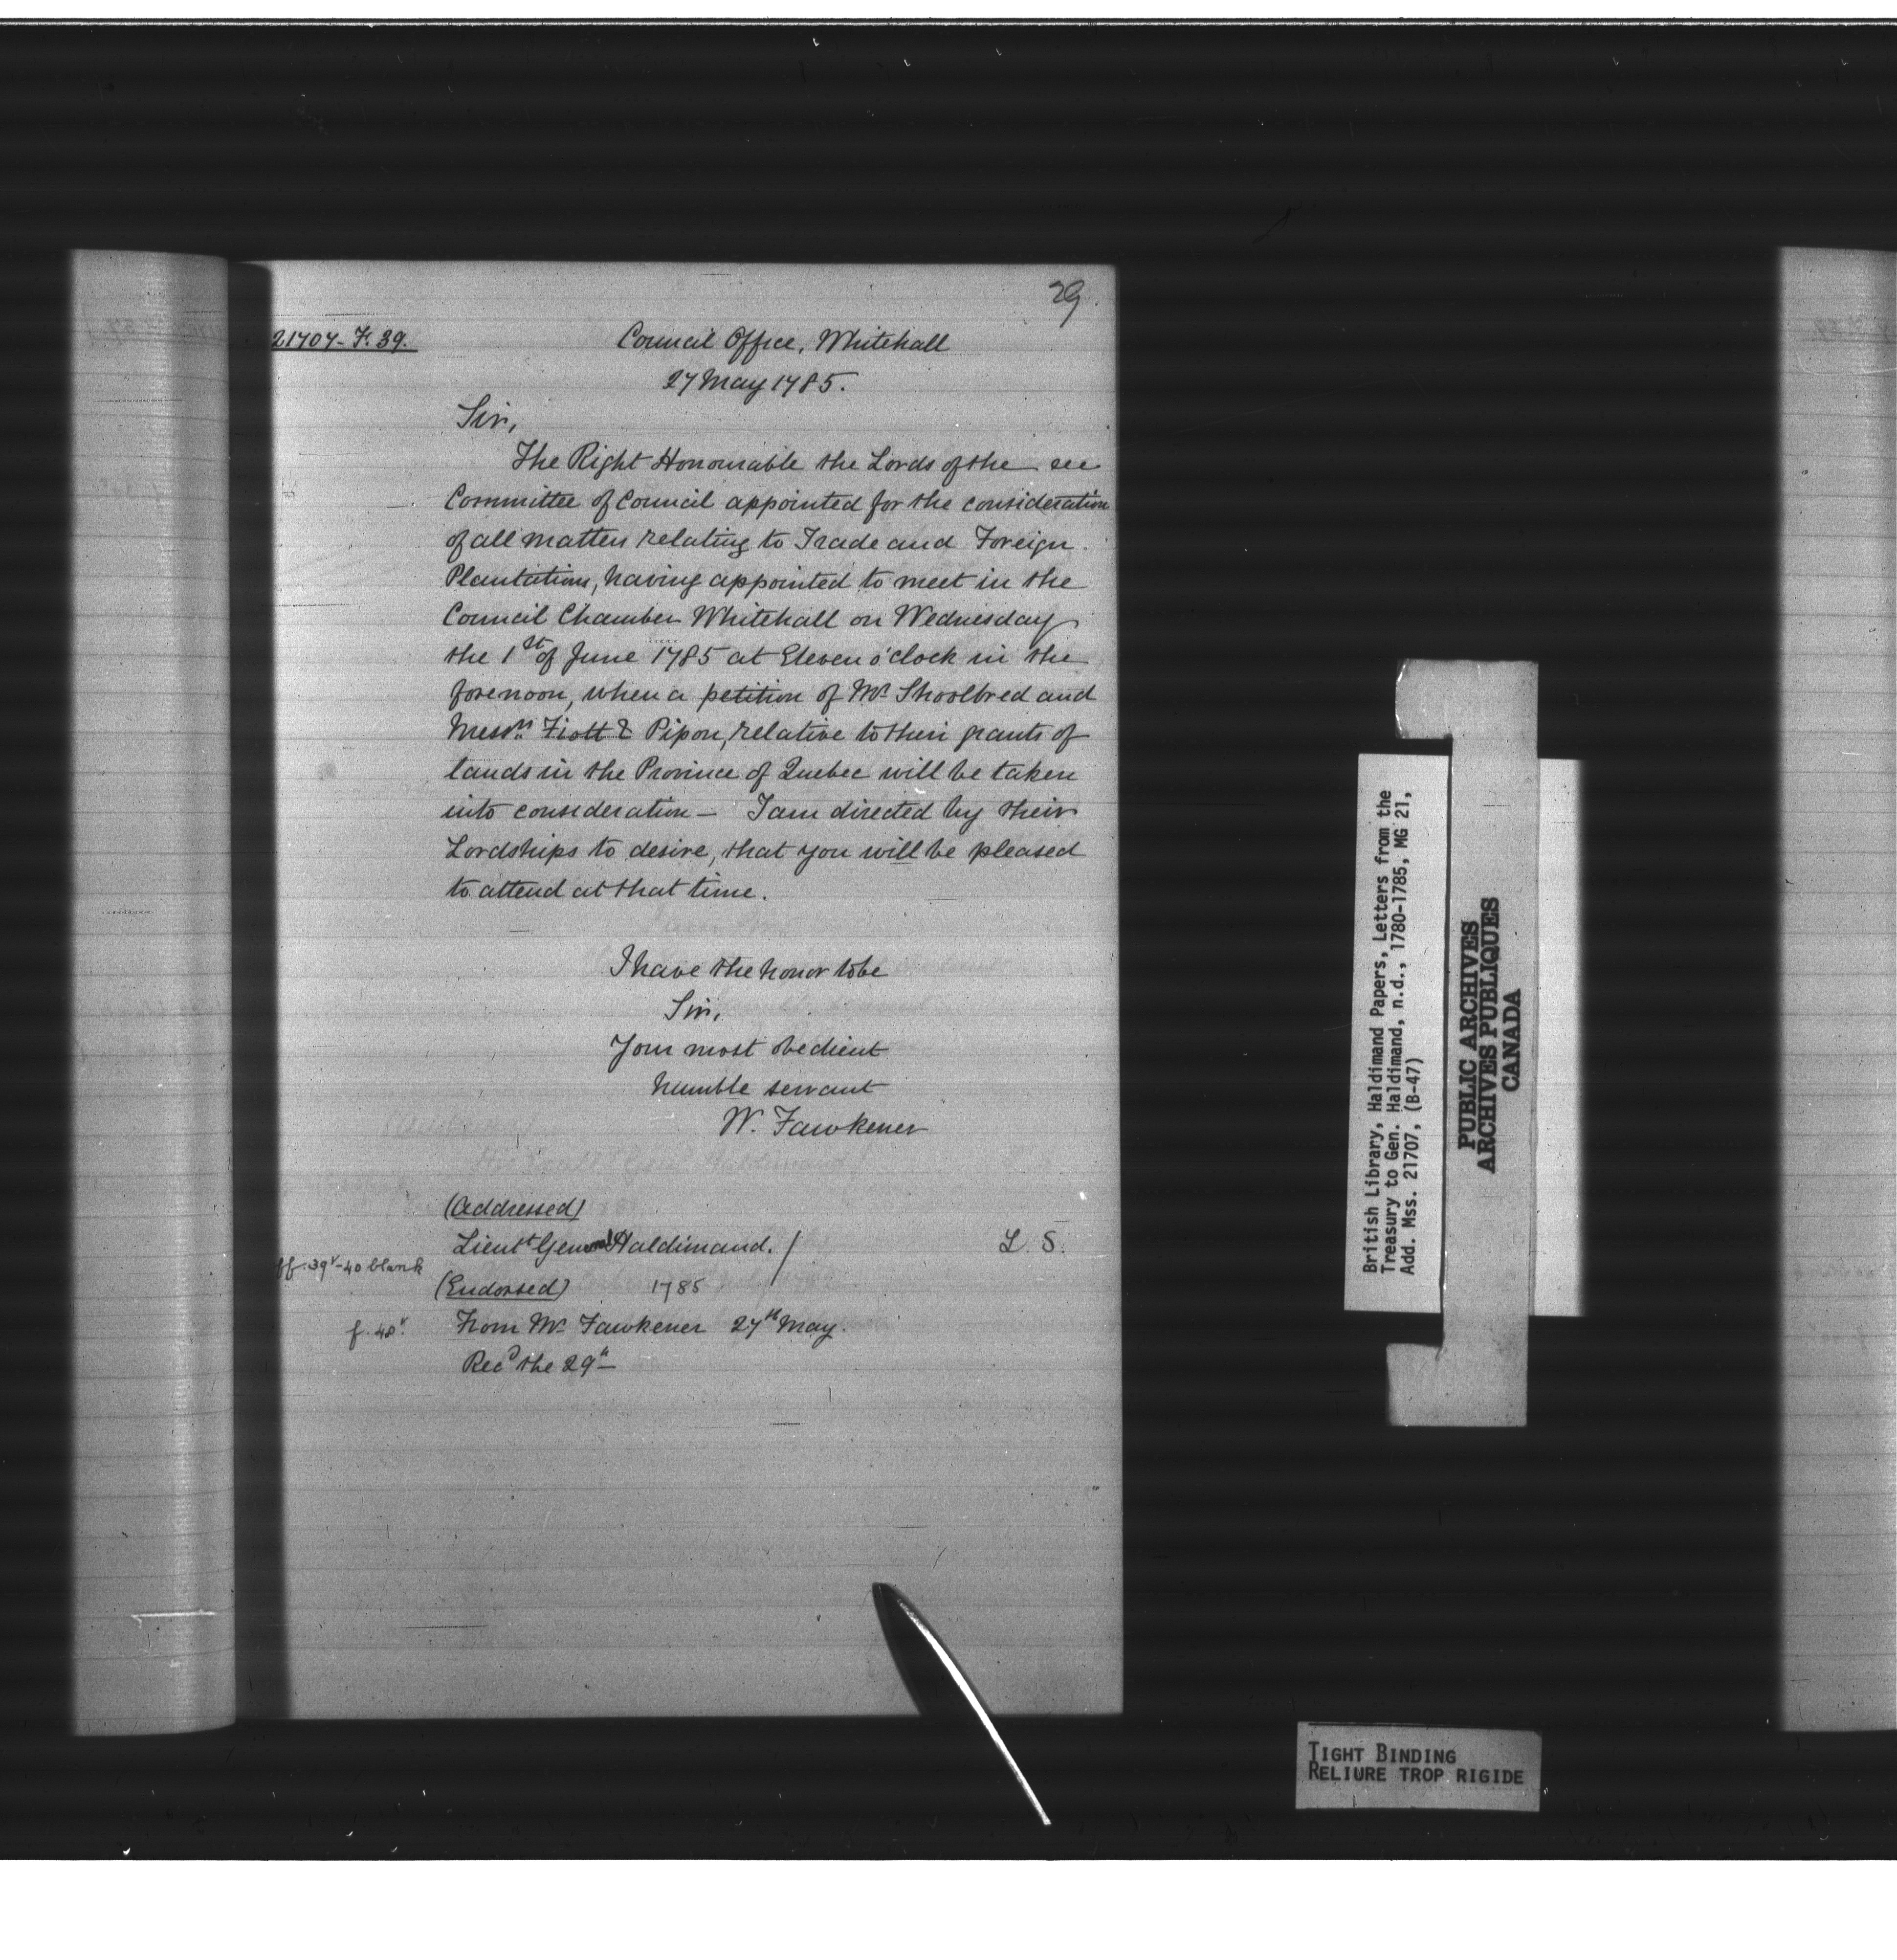 29.
21707-F. 39.
Council Office, Whitehall
27 May 1785.
Sir,
The Right Honourable the Lords of the
Committee of Council appointed for the consideration
of all matters relating to Trade and Foreign
Plantations, having appointed to meet in the
Council Chamber Whitehall on Wednesday
the 1st of June 1785 at Eleven o'clock in the
forenoon, when a petition of Mr Shoolbred and
Messrs. Fiott & Pipon, relative to their grants of
lands in the Province of Quebec will be taken
into consideration — I am directed by their
Lordships to desire, that you will be pleased
to attend at that time.
I have the honor to be
Sir,
Your most obedient
humble servant
W. Fawkener
(Addressed)
Lieutt General Haldimand. /
L. S.
ff. 39v-40 blank
(Endorsed) 1785
f. 40v.
From Mr Fawkener 27th May.
Recd the 29th
British Library, Haldimand Papers, Letters from the
Treasury to Gen. Haldimand, n.d., 1780-1785, MG 21,
Add. Mss. 21707, (B-47)
PUBLIC ARCHIVES
ARCHIVES PUBLIQUES
CANADA
TIGHT BINDING
RELIURE TROP RIGIDE